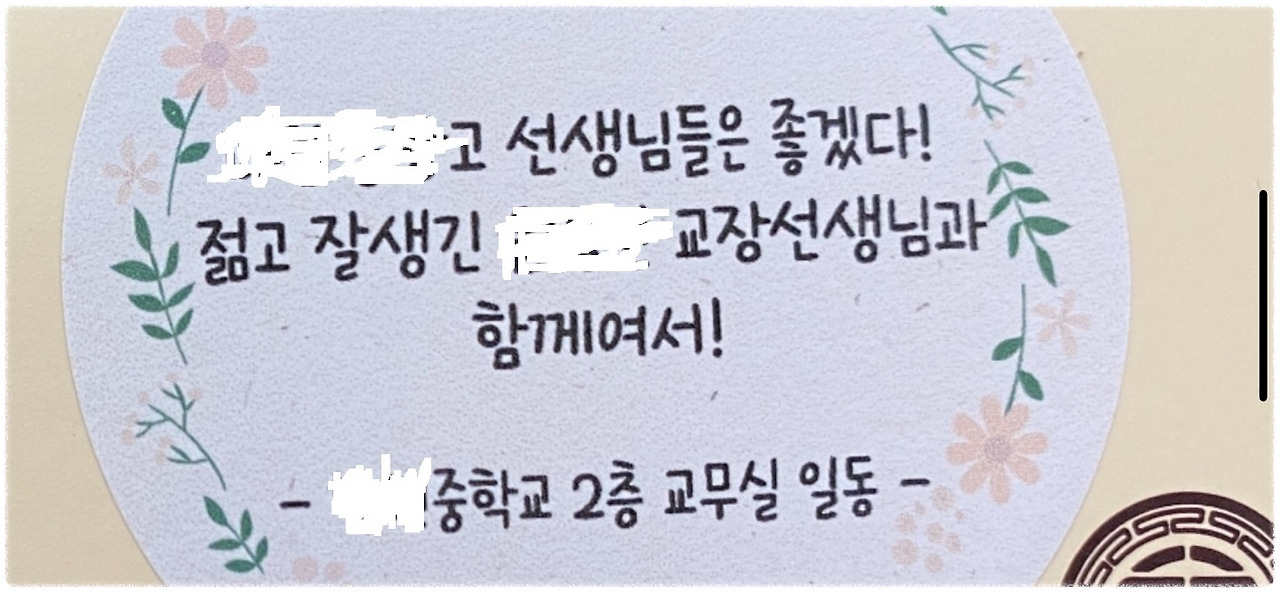 고 선생님들은 좋겠다!
젊고 잘생긴 교장선생님과
함께여서!
- 중학교 2층 교무실 일동 -